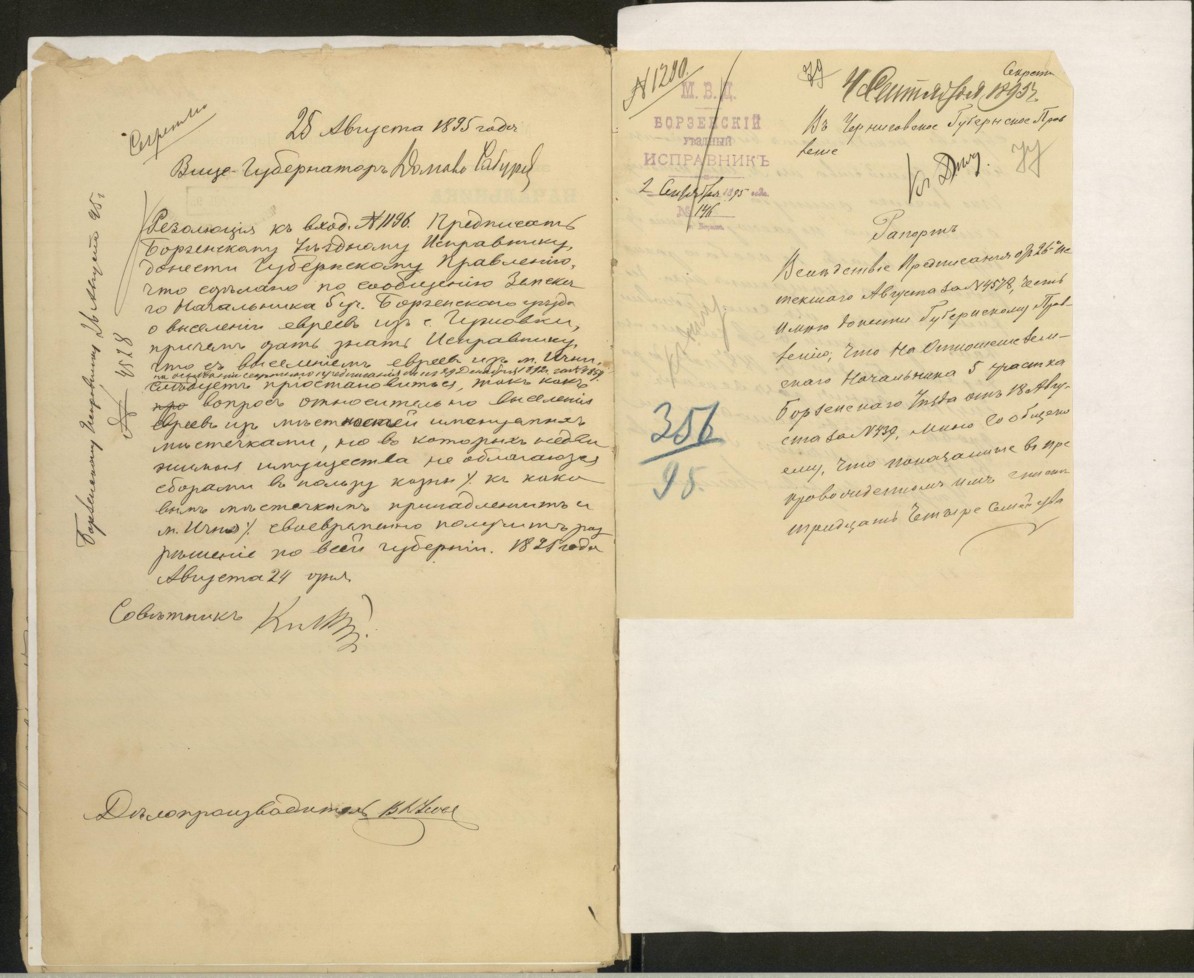 Секретно
25 Августа 1895 года
Вице-Губернаторъ
Борзенскому Исправнику 26 Августа 95 г
№ 4528
Резолюція къ вход. № 1196. Предписать
Борзенскому Уѣздному Исправнику,
донести Губернскому Правленію,
что сдѣлано по сообщенію Земска
го Начальника 5 уч. Борзенскаго уѣзда
о выселеніи евреевъ изъ с.
причемъ дать знать Исправнику,
что съ выселеніемъ евреевъ изъ м. Ични,
слѣдуетъ простановиться, такъ какъ
вопросъ относительно выселенія
евреевъ изъ мѣстностей именуемыхъ
мѣстечками, но въ которыхъ недви
жимыя имущества не облагаются
сборами въ пользу казны /. къ како
вымъ мѣстечкамъ принадлежитъ и
м. Ичня /. своевременно получитъ раз
рѣшеніе по всей губерніи. 1895 года
Августа 24 дня.
Совѣтникъ
Дѣлопроизводитель
№ 1290.
М. В. Д.
БОРЗЕНСКІЙ
УѢЗДНЫЙ
ИСПРАВНИКЪ
2 Сентября 1895 года
№ 146
г. Борзна
356
95.
Секретно
4 Сентября 1895 г.
Въ Черниговское Губернское Прав
леніе
Рапортъ
Вслѣдствіе Предписанія отъ 26 ис
текшаго Августа за № 4528, честь
имѣю донести Губернскому Прав
ленію, что на отношеніе Зем
скаго Начальника 5 участка
Борзенскаго Уѣзда отъ 18 Авгу
ста за № 439, мною сообщено
ему, что показанные въ пре
провожденномъ имъ спискѣ
тридцать четыре семейства